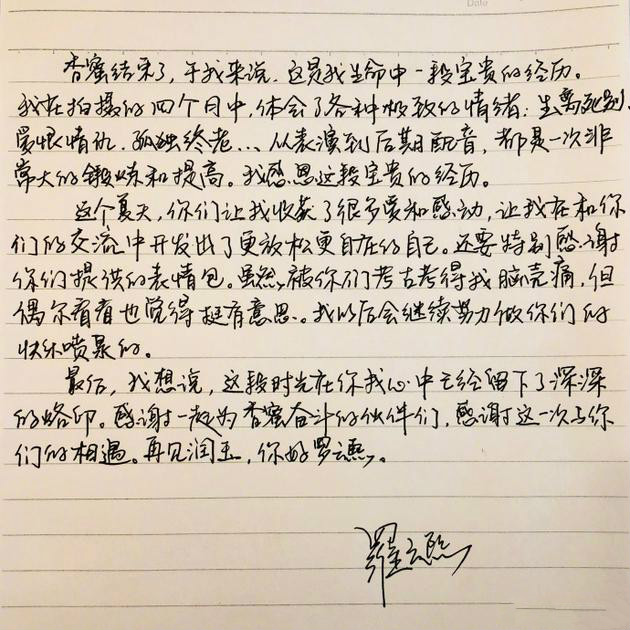 Date
香蜜结束了，于我来说，这是我生命中一段宝贵的经历。
我在拍摄的四个月中，体会了各种极致的情绪：生离死别、
爱恨情仇、孤独终老... 从表演到后期配音，都是一次非
常大的锻炼和提高。我感恩这段宝贵的经历。
这个夏天，你们让我收获了很多爱和感动，让我在和你
们的交流中开发出了更放松更自在的自己。还要特别感谢
你们提供的表情包。虽然被你们考古考得我脑壳痛，但
偶尔看看也觉得挺有意思。我以后会继续努力做你们的
快乐喷泉的。
最后，我想说，这段时光在你我心中已经留下了深深
的烙印。感谢一起为香蜜奋斗的伙伴们，感谢这一次与你
们的相遇。再见润玉，你好罗云熙。
羅云熙